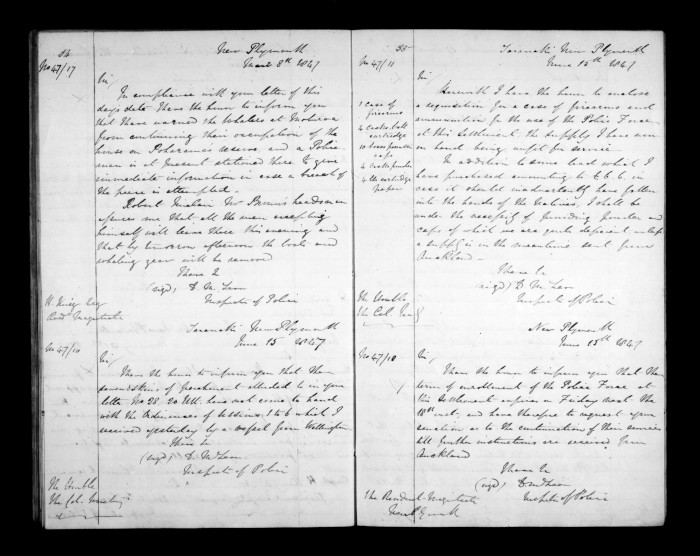 34
New Plymouth
No 47/17
8th 1847
Sir,
In compliance with your letter of this
days date I have the honor to inform you
that I have warned the Whalers at Moturoa
from continuing their occupation of the
house on Poharama's reserve, and a Police-
man is at present stationed there to give
immediate information in case a breach of
the peace is attempted.
Robert Sinclair Mr headsman
assures me that all the men excepting
himself will leave there this evening and
that by tomorrow afternoon the boats and
whaling gear will be removed
I have &
(sigd) D. McLean
Inspector of Police
H. King Esq
Resdt Magistrate
Taranaki New Plymouth
June 15 1847
Sir,
I have the honor to inform you that the
of Parchment alluded to in your
letter No 28. 20 Ult. have not come to hand
with the Ordinances of Sessions 1 to 6 which I
received yesterday by a vessel from Wellington
I have &
(sigd) D. McLean
Inspector of Police
The Honble
The Col. Secretary
35
Taranaki New Plymouth
No 47/11
June 15th 1847
Sir
Herewith I have the honor to enclose
a requisition for a case of firearms and
1 case of
firearms
ammunition for the use of the Police Force
at this Settlement the supply I have now
cartridge
on hand being unfit for service
caps
In addition to some lead which I
have purchased amounting to £ 6. 6, in
cartridge
paper
case it should inadvertently have fallen
into the hands of the Natives, I shall be
under the necessity of providing powder and
caps of which we are quite deficient unless
a supply is in the meantime sent from
Auckland
I have &c
(sigd) D. McLean
Inspector of Police
The Honble
The Col. Secy
New Plymouth
June 15th 1847
No 47/18
Sir,
I have the honor to inform you that the
term of enrollment of the Police Force at
this Settlement expires on Friday next the
18th inst, and have therefore to request your
sanction as to the continuation of their services
till further instructions are received from
Auckland
I have &c
(sigd) D. McLean
Inspector of Police
The Resident Magistrate
New Plymouth